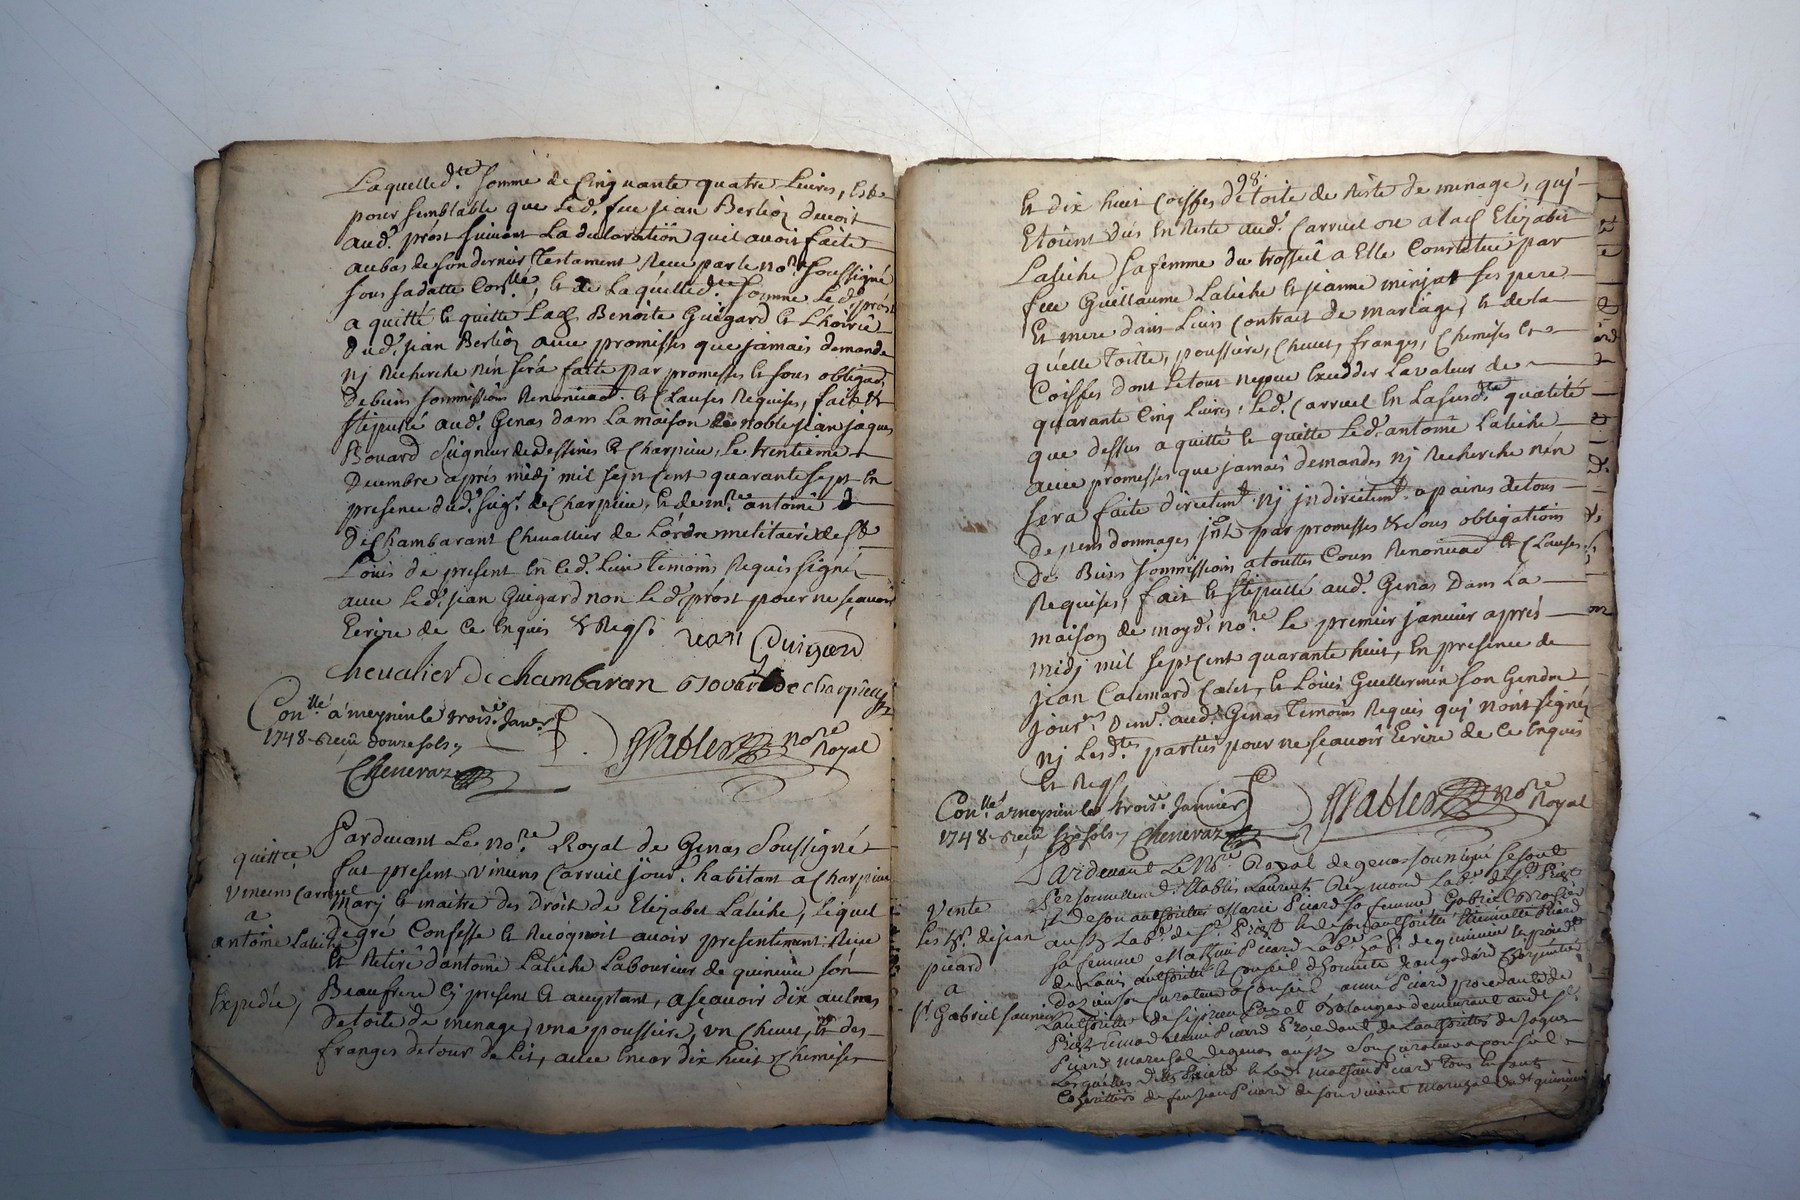 Laquelled.te somme de Cinquante quatre Livres, Este
pour semblable que led. feu jean Berlioz devoit
aud. prost suivant La declaration quil avoit faitte
aubas de son dernier Testament Receu par le No.re soussigné
sous sadatte Con.llé, et de Laquelled.te somme led. prost
a quitté et quitte Lad. Benoite Guigard et Lhoirie
Dud. jean Berlioz avec promesses que jamais demande
nj Recherche nén sérá faite par promesses et sous obligaõ
De biens sommissions Renonciaõ. et Clauses Requises, fait et
stipulé aud. Genas dans La maison de noble jean jaques
Bovard Seigneur de Dessines et Charpieu, Le trentieme
Decembre après midj mil sept Cent quarante sept En
presence dud. seig.r de Charpieu, et de m.re antoine
De Chambarant Chevallier de Lórdre militaire de S.t
Loüis de present En led. Lieu temoins Requis signé
avec Led. jean Guigard non Led. próst pour ne sçavoir
Ecrire de Ce Enquis & Reqs.
jean Guigard
Chevalier De chambaran Bovard De charpieu
Con.llé á meyzieu le trois.e Janv.r
1748 Receu douze sols
Chenevaz
Pablez No.re Royal
Pardevant Le No.re Royal de Genas Soussigné
quittce
fut present vincens Carruel jour. habitant a Charpieu
vincens Carruel
Marj et maitre des Droit de Elizabet Labiche, Lequel
a
antoine Labiche
de gré Confesse et Recognoit avoir presentement Receu
et Retiré d'antoine Labiche Labourieur de quincieu són
Expediée,
Beaufrere Cy present et acceptant, a sçavoir dix aulnes
de toile de menage, une poussiere, un Chevet, et des
franges de tour de Lit, avec Encor dix huit Chemises
98.
Et dix huit Coiffes de toile de Riste de menage, quj
Etoient dus En Reste aud. Carruel ou a lad. Elizabet
Labiche sa femme du trosseil a Elle Constitué par
feu Guillaume Labiche et jeanne minjat ses pere
et mere dans Leurs Contract de mariage, et de la
quelle toille, poussiere, Chevet, franges, Chemises et
Coiffes dont Letout ne peut Exedder La valeur de
quarante Cinq Livres, led. Carruel En La susd.te qualité
que dessus a quitté et quitte Led. antoine Labiche
avec promesses que jamais demandes nj Recherche nén
sera faite directem.t nj jndirectem.t a paines de tous
depens dommages jnt. par promesses & sous obligations
De Biens sommissions a touttes Cours Renonciaõ et Clauses
Requises, fait et stipullé aud. Genas Dans La
maison de moyd. No.re Le premier janvier après
midj mil sept Cent quarante huit, En presence de
jean Calemard Cadet, et Loüis Guillermin son Gendre
jour.rs dem.t aud. Genas temoins Requis quj nónt signé
nj Lesd.tes parties pour ne sçavoir Ecrire de Ce Enquis
et Reqs.
Con.llé a meyzieu le trois.e Janvier
1748 Receu six sols Chenevaz
Pablez No.re Royal
Pardevant Le No.re Royal de genas soussigné se sont
Personnellem.t Etablis Laurent Reymond Lab.r de S.t Priest
Vente
& de son authorité Marie Picard sa femme
les h.rs de jean
picard
a
S.r Gabriel saunier